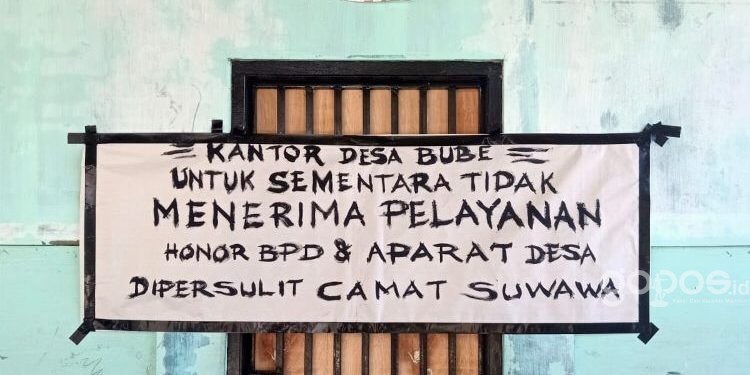 KANTOR DESA BUBE
UNTUK SEMENTARA TIDAK
MENERIMA PELAYANAN
HONOR BPD & APARAT DESA
DIPERSULIT CAMAT SUWAWA
gopos.id